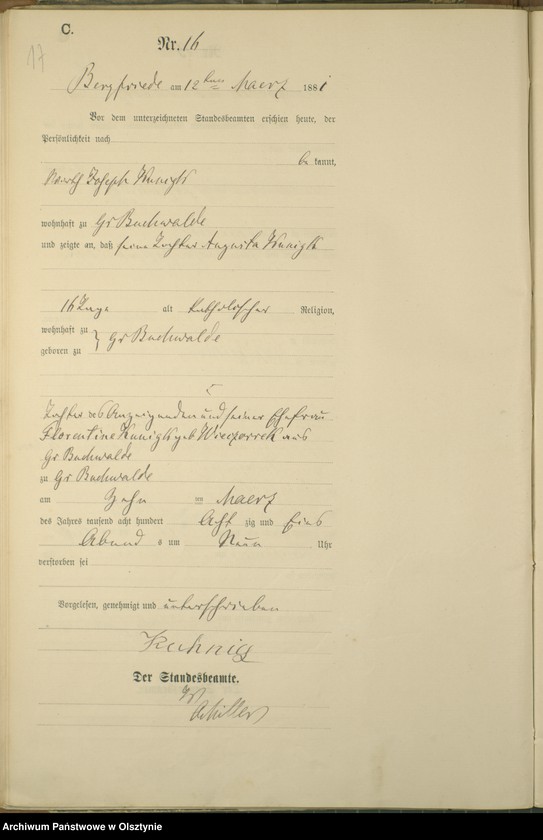 C.
17
Nr. 16
Bergfriede am 12ten Maerz 1881
Vor dem unterzeichneten Standesbeamten erschien heute, der
Persönlichkeit nach
be kannt,
Joseph Kunigk
wohnhaft zu Gr Buchwalde
und zeigte an, daß seine Tochter Augusta Kunigk
16 Tage alt katholischer Religion,
wohnhaft zu
geboren zu } Gr Buchwalde
Tochter des Anzeigenden und seiner Ehefrau
Florentine Kunigk geb Wieczorrek aus
Gr Buchwalde
zu Gr Buchwalde
am Zehn ten Maerz
des Jahres tausend acht hundert Acht zig und Eins
Abend s um Neun Uhr
verstorben sei
Vorgelesen, genehmigt und unterschrieben
Kuhnigk
Der Standesbeamte.
Archiwum Państwowe w Olsztynie